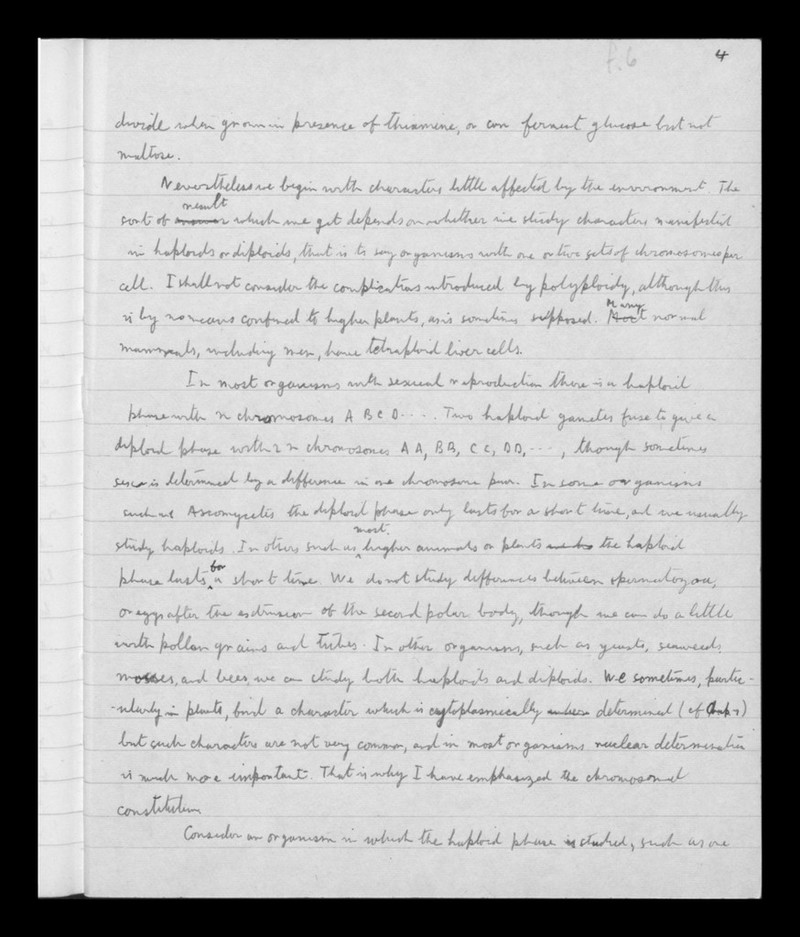 f.6 4
divide when grown in presence of thiamine, or can ferment glucose but not
maltose.
Nevertheless we begin with characters little affected by the environment. The
result
sort of answer which we get depends on whether we study characters manifested
in haploids or diploids, that is to say organisms with one or two sets of chromosomes per
cell. I shall not consider the complications introduced by polyploidy, although this
is by no means confined to higher plants, as is sometimes supposed. Many
Most normal
mammals, including men, have tetraploid liver cells.
In most organisms with sexual reproduction there is a haploid
phase with n chromosomes A B C D ..... Two haploid gametes fuse to give a
diploid phase with 2 n chromosomes AA, BB, CC, DD, ..., though sometimes
sex is determined by a difference in one chromosome pair. In some organisms
such as Ascomycetes the diploid phase only lasts for a short time, and we usually
most
study haploids. In others such as higher animals or plants the haploid
for
phase lasts a short time. We do not study differences between spermatozoa,
or eggs after the extrusion of the second polar body, though we can do a little
with pollen grains and tubes. In other organisms, such as yeasts, seaweeds
mosses, and bees, we can study both haploids and diploids. We sometimes, partic-
-ularly in plants, find a character which is cytoplasmically determined (cf Chap 1)
but such characters are not very common, and in most organisms nuclear determination
is much more important. That is why I have emphasized the chromosomal
constitution
Consider an organism in which the haploid phase is studied, such as one